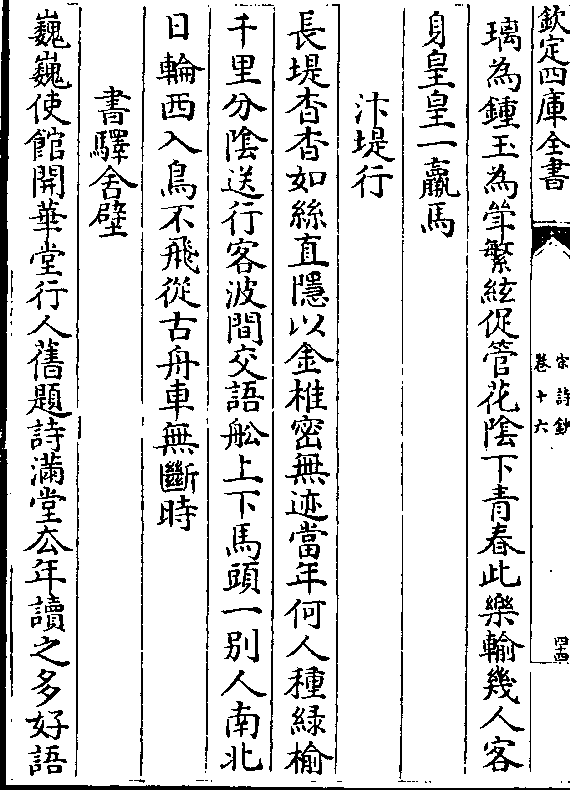 欽定四庫全書
宋詩鈔
卷十六
四十四
璃為鍾玉為笙繁絃促管花陰下青春此樂輸幾人客
身皇皇一羸馬
汴堤行
長堤杳杳如絲直隱以金椎密無迹當年何人種緑榆
千里分陰送行客波間交語舩上下馬頭一別人南北
日輪西入鳥不飛從古舟車無斷時
書驛舍壁
巍巍使館開華堂行人舊題詩滿堂去年讀之多好語